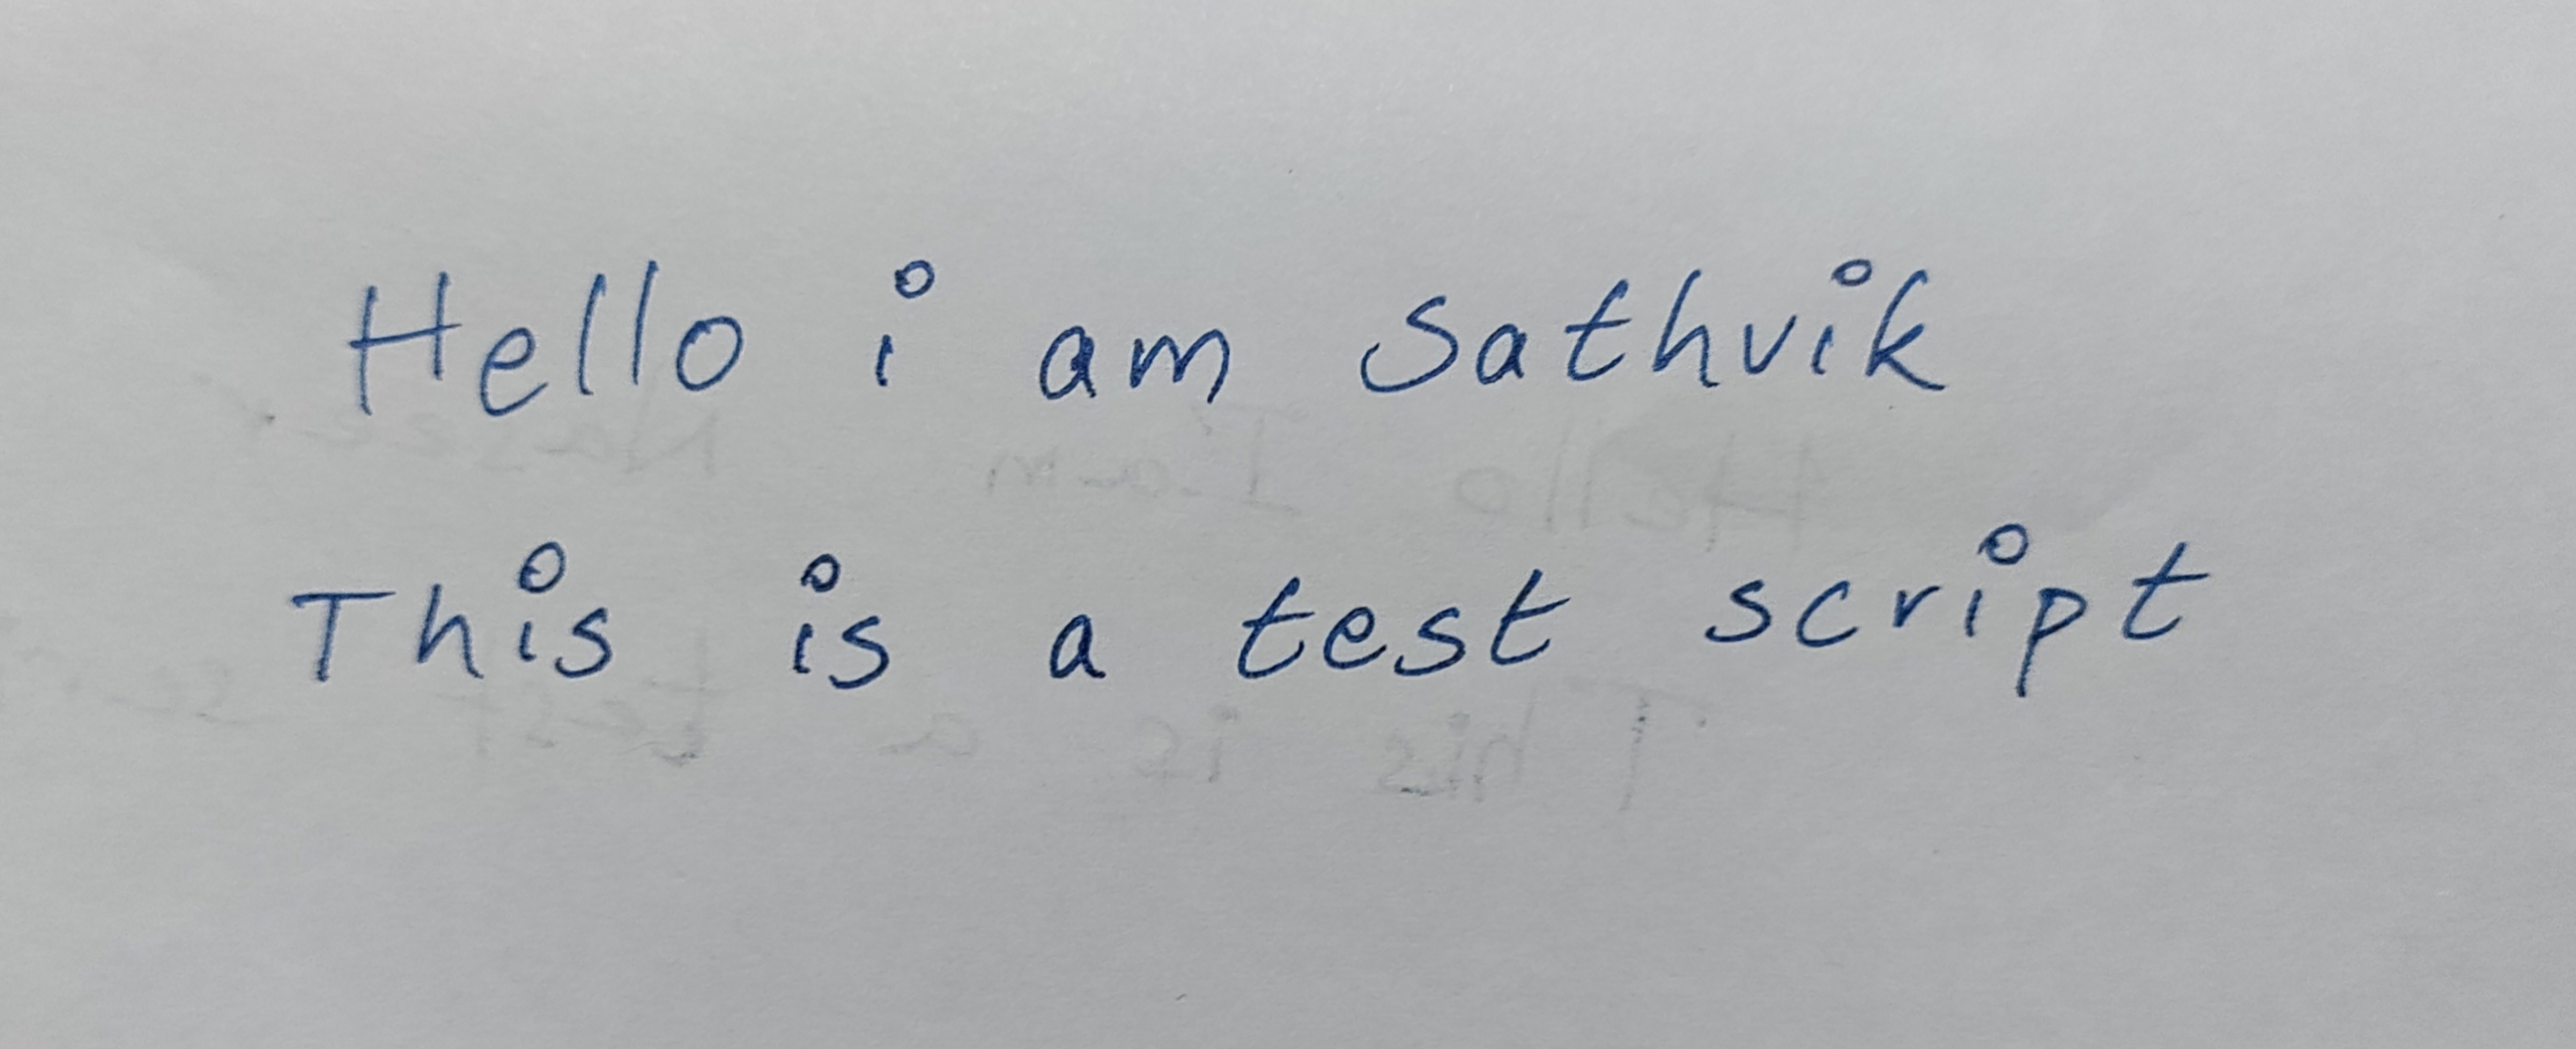 Hello i am Sathvik
This is a test script